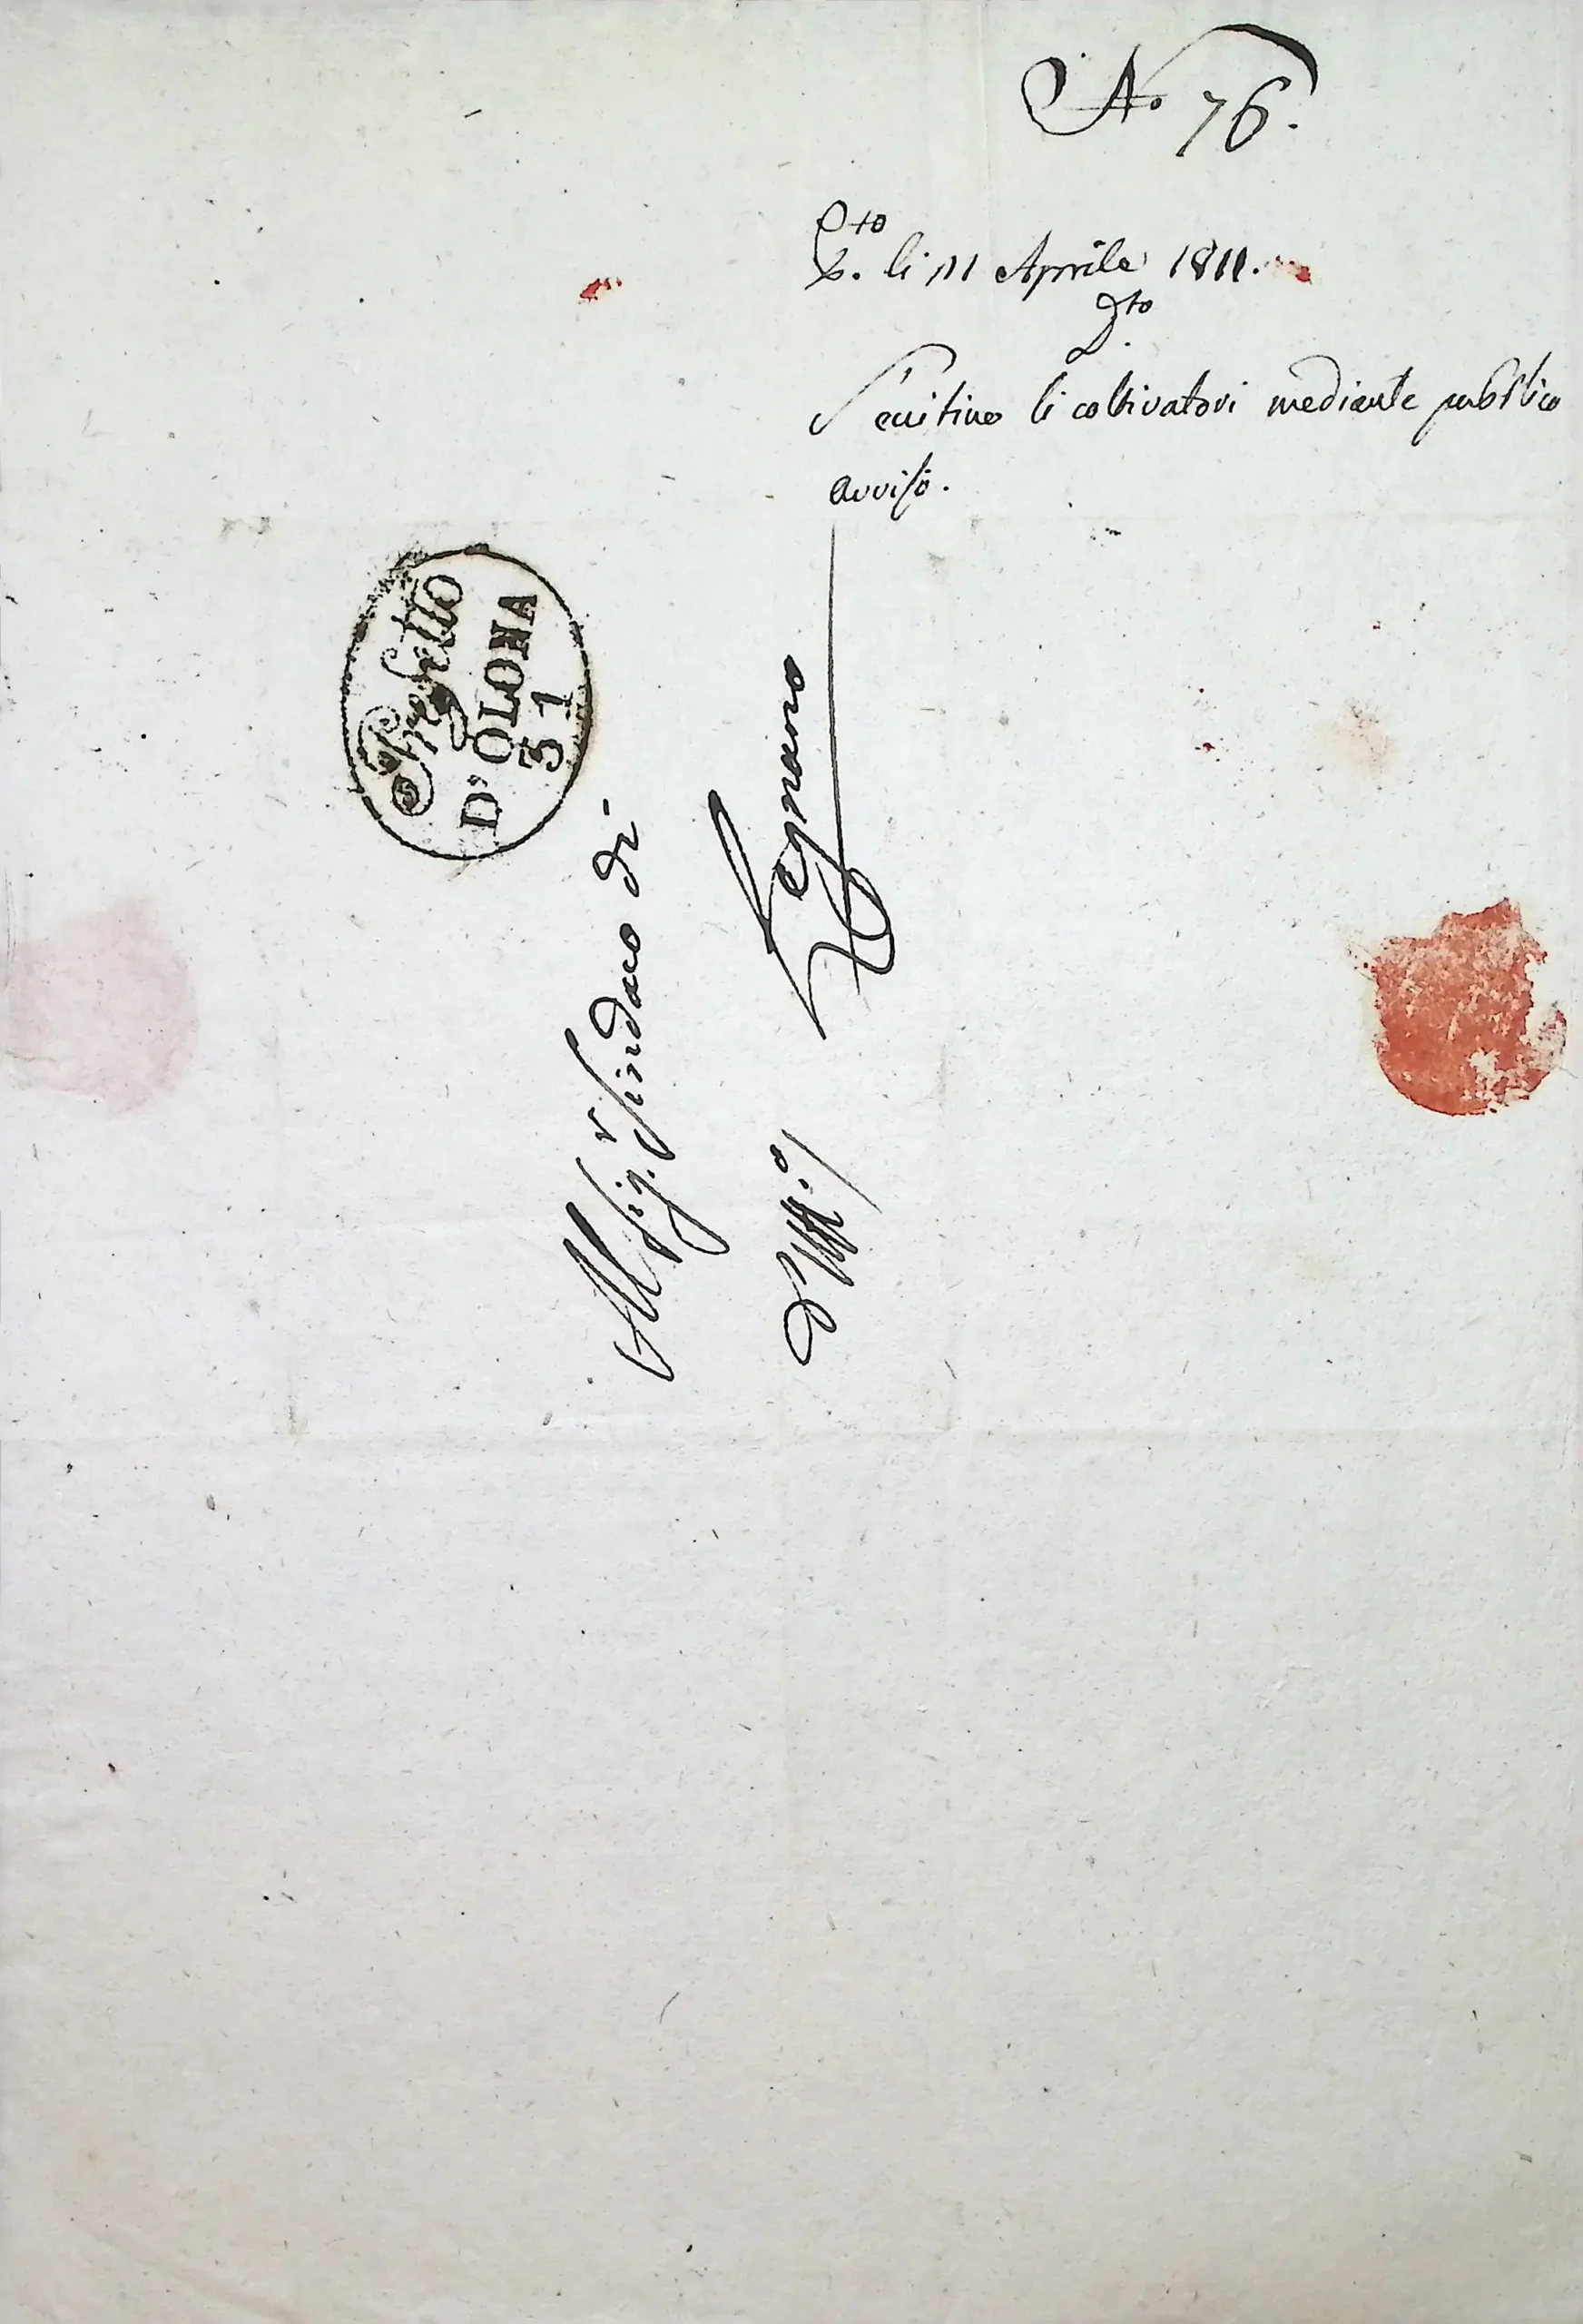 N.° 76.
P.to li 11 Aprile 1811.
D.to
S'ecitino li coltivatori mediante pubblico
avviso.
Prefetto
D'OLONA
31
Al Sig.r Sindaco di
Legnano